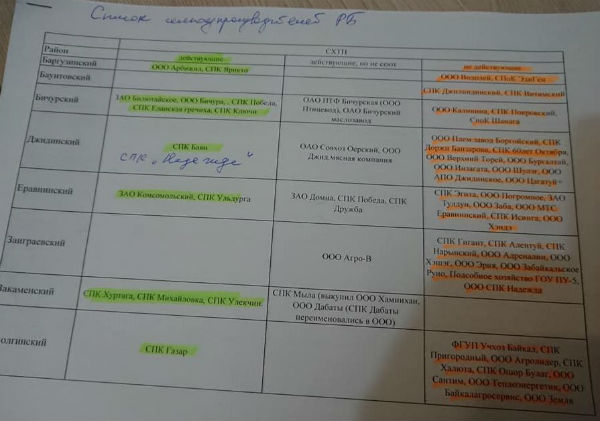 Список сельхозпроизводителей РБ
Район
СХТП
действующие
действующие, но не сеют
не действующие
Баргузинский
ООО Арбижил, СПК Ярикто
ООО Водолей, СПоК ЭкоГен
Баунтовский
СПК Джилиндинский, СПК Витимский
Бичурский
ЗАО Билютайское, ООО Бичура, , СПК Победа,
СПК Еланская гречиха, СПК Ключи
ОАО ПТФ Бичурская (ООО
Птицевод), ОАО Бичурский
маслозавод
ООО Калинина, СПК Покровский,
СпоК Шанага
Джидинский
СПК Баян
СПК
ОАО Совхоз Оерский, ООО
Джид.мясная компания
ООО Плем завод Боргойский, СПК
Доржи Банзарова, СПК 60лет Октября,
ООО Верхний Торей, ООО Бургалтай,
ООО Инзагата, ООО Шулэг, ООО
АПО Джидинское, ООО Цагатуй
Еравнинский
ЗАО Комсомольский, СПК Ульдурга
ЗАО Домна, СПК Победа, СПК
Дружба
СПК Эгита, ООО Погромное, ЗАО
Тулдун, ООО Заба, ООО МТС
Еравнинский, СПК Исинга, ООО
Хэндэ
Заиграевский
ООО Агро-В
СПК Гигант, СПК Ацентуй, СПК
Нарынский, ООО Адреналин, ООО
ООО Эрия, ООО Забайкальское
Руно, Подсобное хозяйство ГОУ ПУ-5,
ООО СПК Надежда
Закаменский
СПК Хуртага, СПК Михайловка, СПК Улекчин
СПК Мыла (выкупил ООО Хамнихан,
ООО Дабаты (СПК Дабаты
переименовались в ООО)
олгинский
СПК Газар
ФГУП Учхоз Байкал, СПК
Пригородный, ООО Агролидер, СПК
Халюта, СПК Ошор Булаг, ООО
Сантим, ООО Теплоэнергетик, ООО
Байкалагросервис, ООО Земля